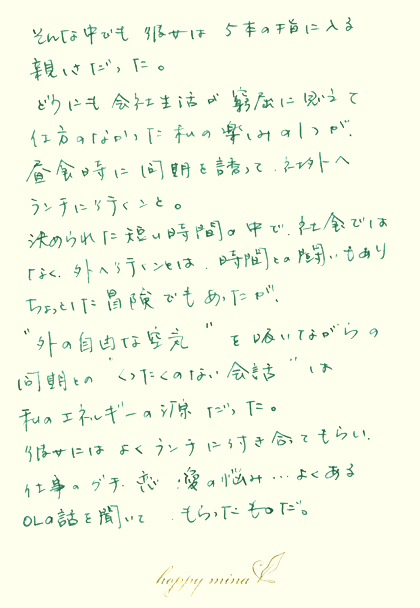 そんな中でも 彼女は 5本の指に入る
親しさだった。
どうにも 会社生活が 窮屈に思えて
仕方のなかった 私の楽しみの1つが、
昼食時に 同期を誘って、社外へ
ランチに行くこと。
決められた 短い時間の中で、社食では
なく、外へ行くことは、時間との闘いもあり
ちょっとした冒険でもあったが、
"外の自由な空気" を吸いながらの
同期との "くったくのない会話" は
私のエネルギーの源だった。
彼女には よくランチに付き合ってもらい、
仕事のグチ、恋愛の悩み…よくある
OLの話を聞いて もらったものだ。
happy mina